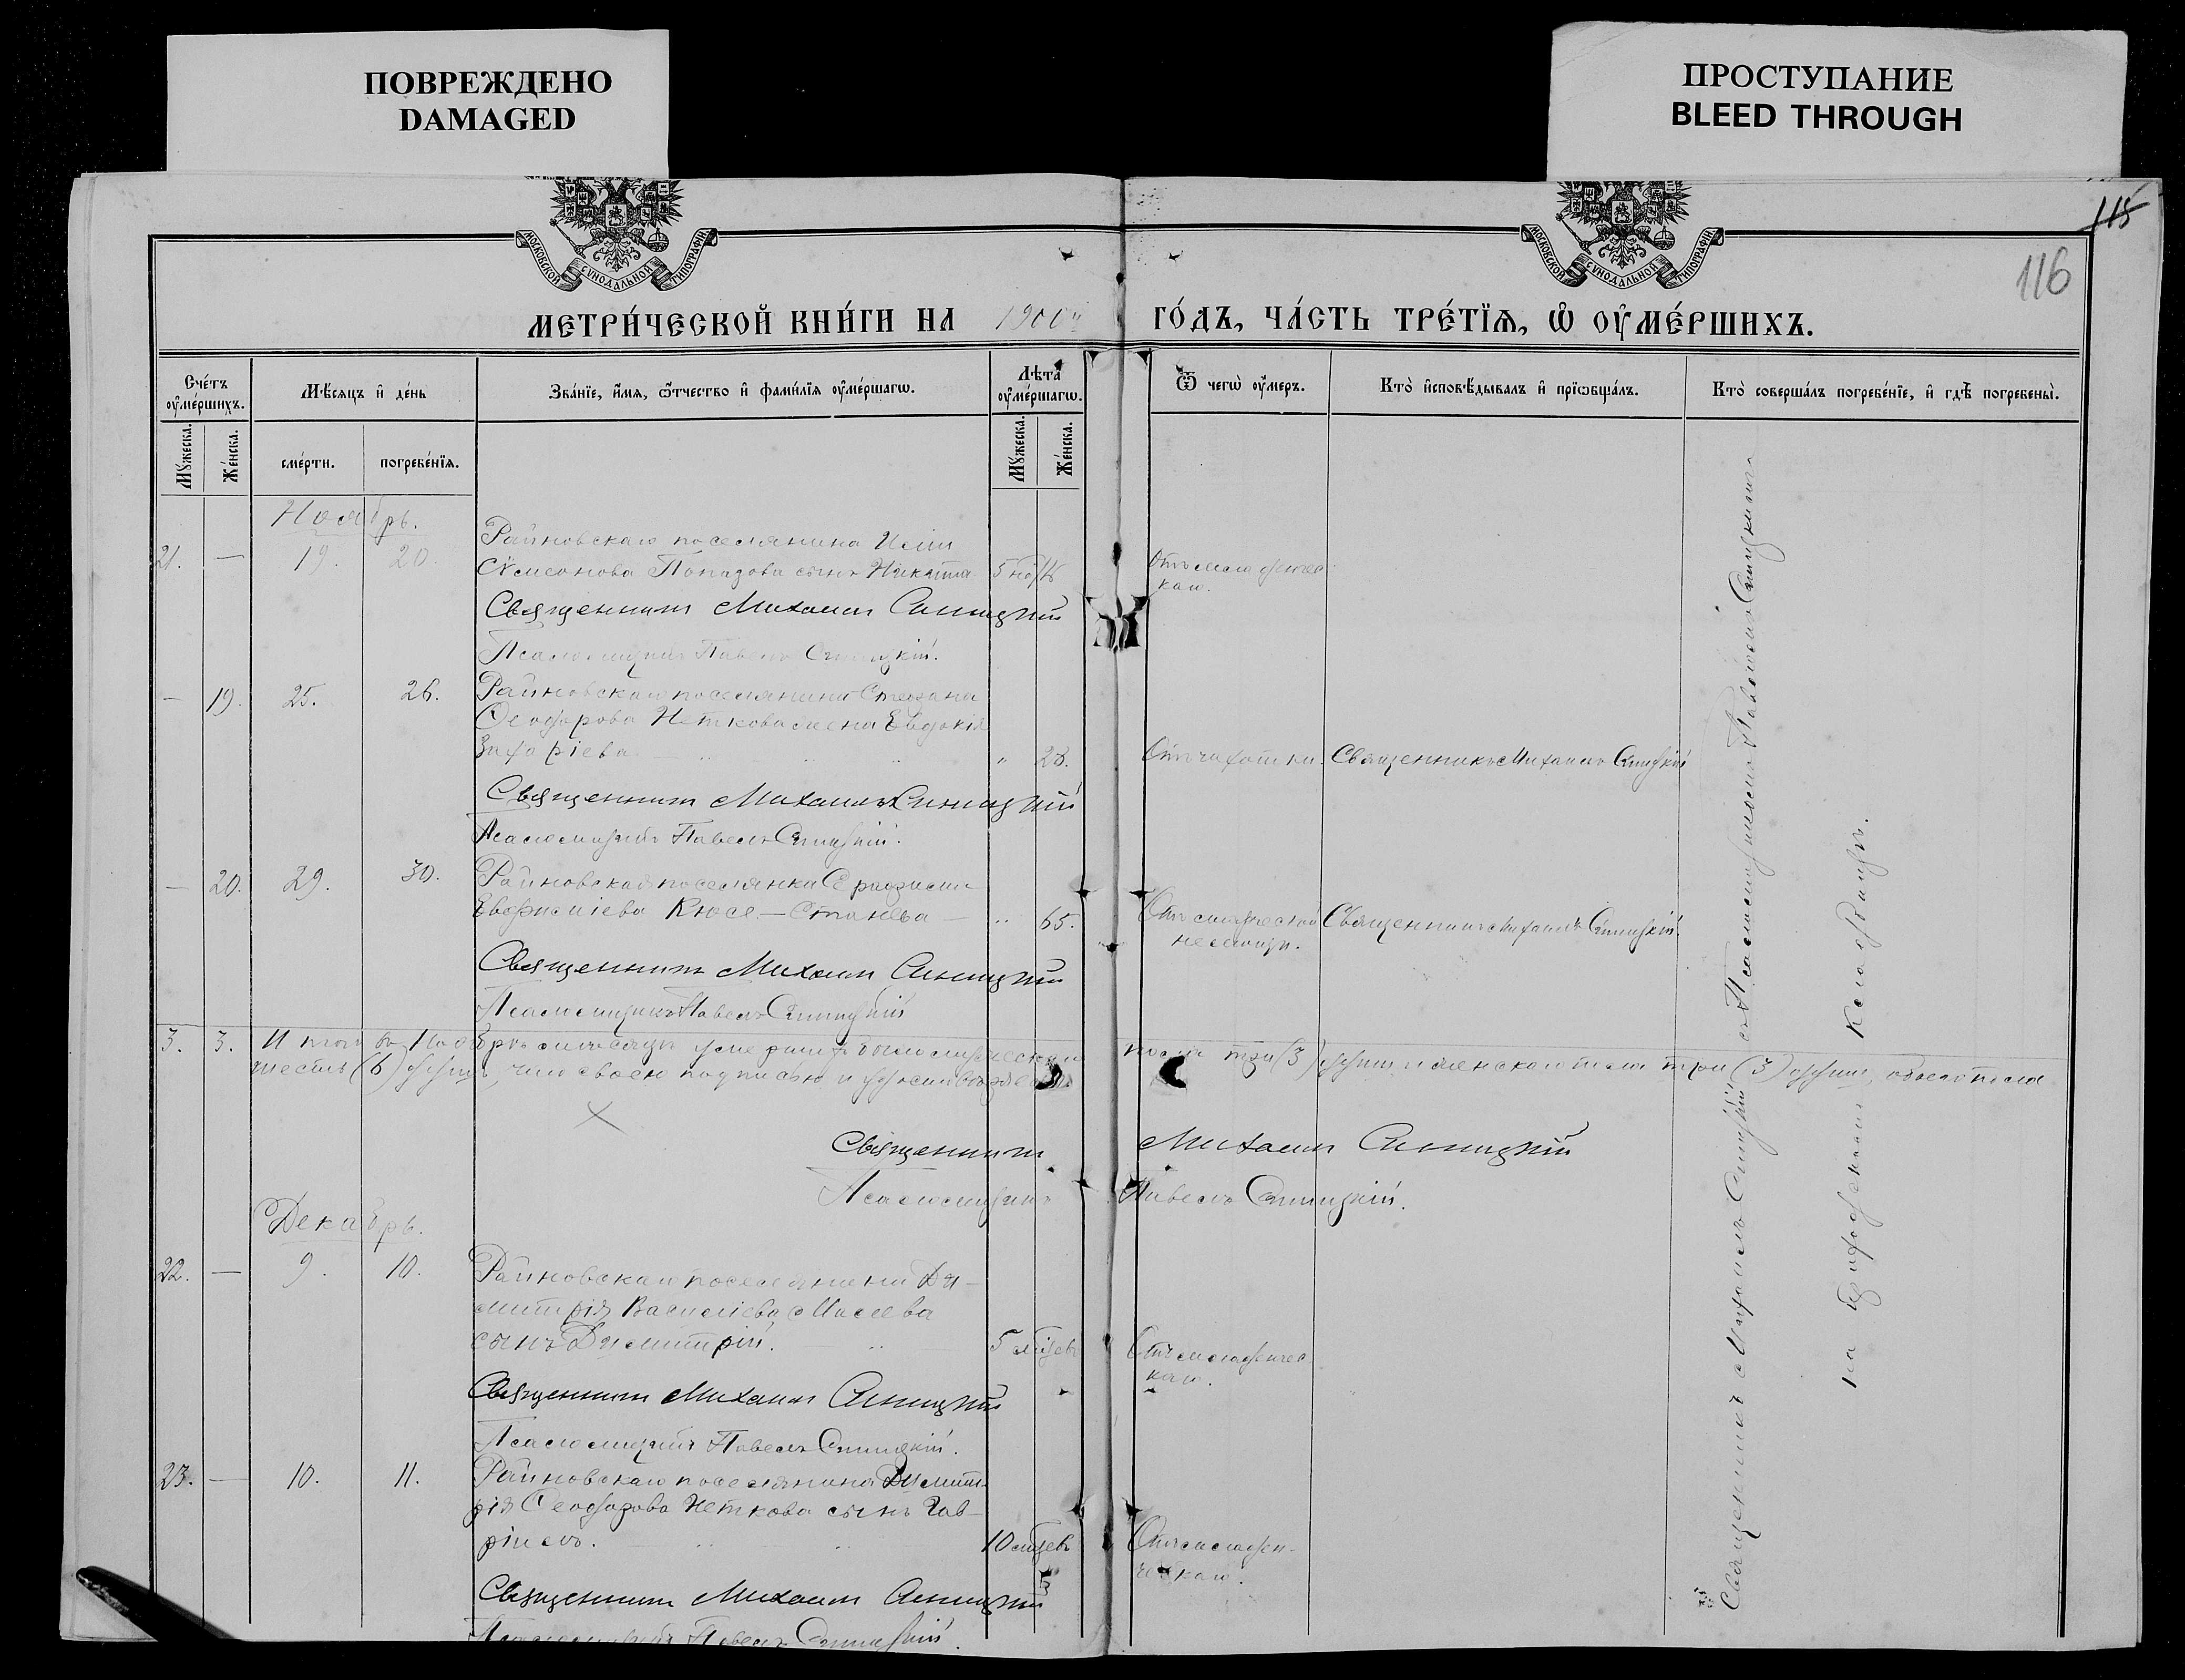 ПОВРЕЖДЕНО
DAMAGED
ПРОСТУПАНИЕ
BLEED THROUGH
115
116
МОСКОВСКОЙ СѴНОДАЛЬНОЙ ТИПОГРАФІИ
МОСКОВСКОЙ СѴНОДАЛЬНОЙ ТИПОГРАФІИ
МЕТРИ́ЧЕСКОЙ КНИ́ГИ НА 1900й ГО́ДЪ, ЧА́СТЬ ТРЕ́ТЇѦ, Ѡ ОУ҆МЕ́РШИХЪ.
Сче́тъ оу҆ме́ршихъ.
Мꙋ́жеска.
Же́нска.
Мѣ́сѧцъ и҆ де́нь
сме́рти.
погребе́нїѧ.
Зва́нїе, и҆́мѧ, ѻ҆́тчество и҆ фами́лїѧ оу҆ме́ршагѡ.
Лѣ́та оу҆ме́ршагѡ.
Мꙋ́жеска.
Же́нска.
Ѿ чегѡ̀ оу҆́меръ.
Кто̀ и҆сповѣ́дывалъ и҆ прїѡбща́лъ.
Кто̀ соверша́лъ погребе́нїе, и҆ гдѣ̀ погребены̀.
Ноябрь.
21. — 19. 20.
Раиновскаго поселянина Иліи
Сѵмеонова Попазова сынъ Никита
Отъ младенчес
каго.
Священникъ Михаилъ Синицкій
Псаломщикъ Павелъ Синицкій.
— 19. 25. 26.
Раиновскаго поселянина Стефана
Ѳеодорова Неткова жена Евдокія
Захаріева " 28.
Отъ чахотки. Священникъ Михаилъ Синицкій
Священникъ Михаилъ Синицкій
Псаломщикъ Павелъ Синицкій.
— 20. 29. 30.
Раиновская поселянка
Кюся — Станева — " 65.
Отъ старческой Священникъ Михаилъ Синицкій.
немощи.
Священникъ Михаилъ Синицкій
Псаломщикъ Павелъ Синицкій
3. 3. Итого въ Ноябрѣ мѣсяцѣ умершихъ было мужескаго пола три (3) души и женскаго пола три (3) души, обоего пола
шесть (6) душъ, что своею подписью и удостовѣряемъ
Священникъ Михаилъ Синицкій
Псаломщикъ Павелъ Синицкій.
Декабрь.
22. — 9. 10.
Раиновскаго поселянина Ди-
митрія Василіева
сынъ Димитрій. 5 мѣсцевъ
Отъ младенчес
каго.
Священникъ Михаилъ Синицкій
Псаломщикъ Павелъ Синицкій.
23. — 10. 11.
Раиновскаго поселянина Димит-
рія Ѳеодорова Неткова сынъ Гав-
ріилъ. 10 мѣсцевъ
Отъ младен-
ческаго.
Священникъ Михаилъ Синицкій
Псаломщикъ Павелъ Синицкій.
Священникъ Михаилъ Синицкій съ Псаломщикомъ Павломъ Синицкимъ
на приходскомъ кладбищѣ.